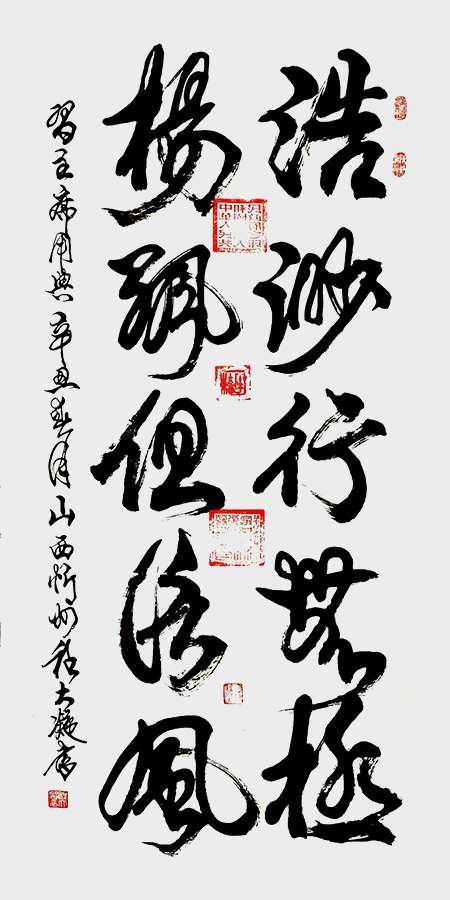 浩渺行無極
揚帆但信風
習主席用典辛丑春月山西忻州